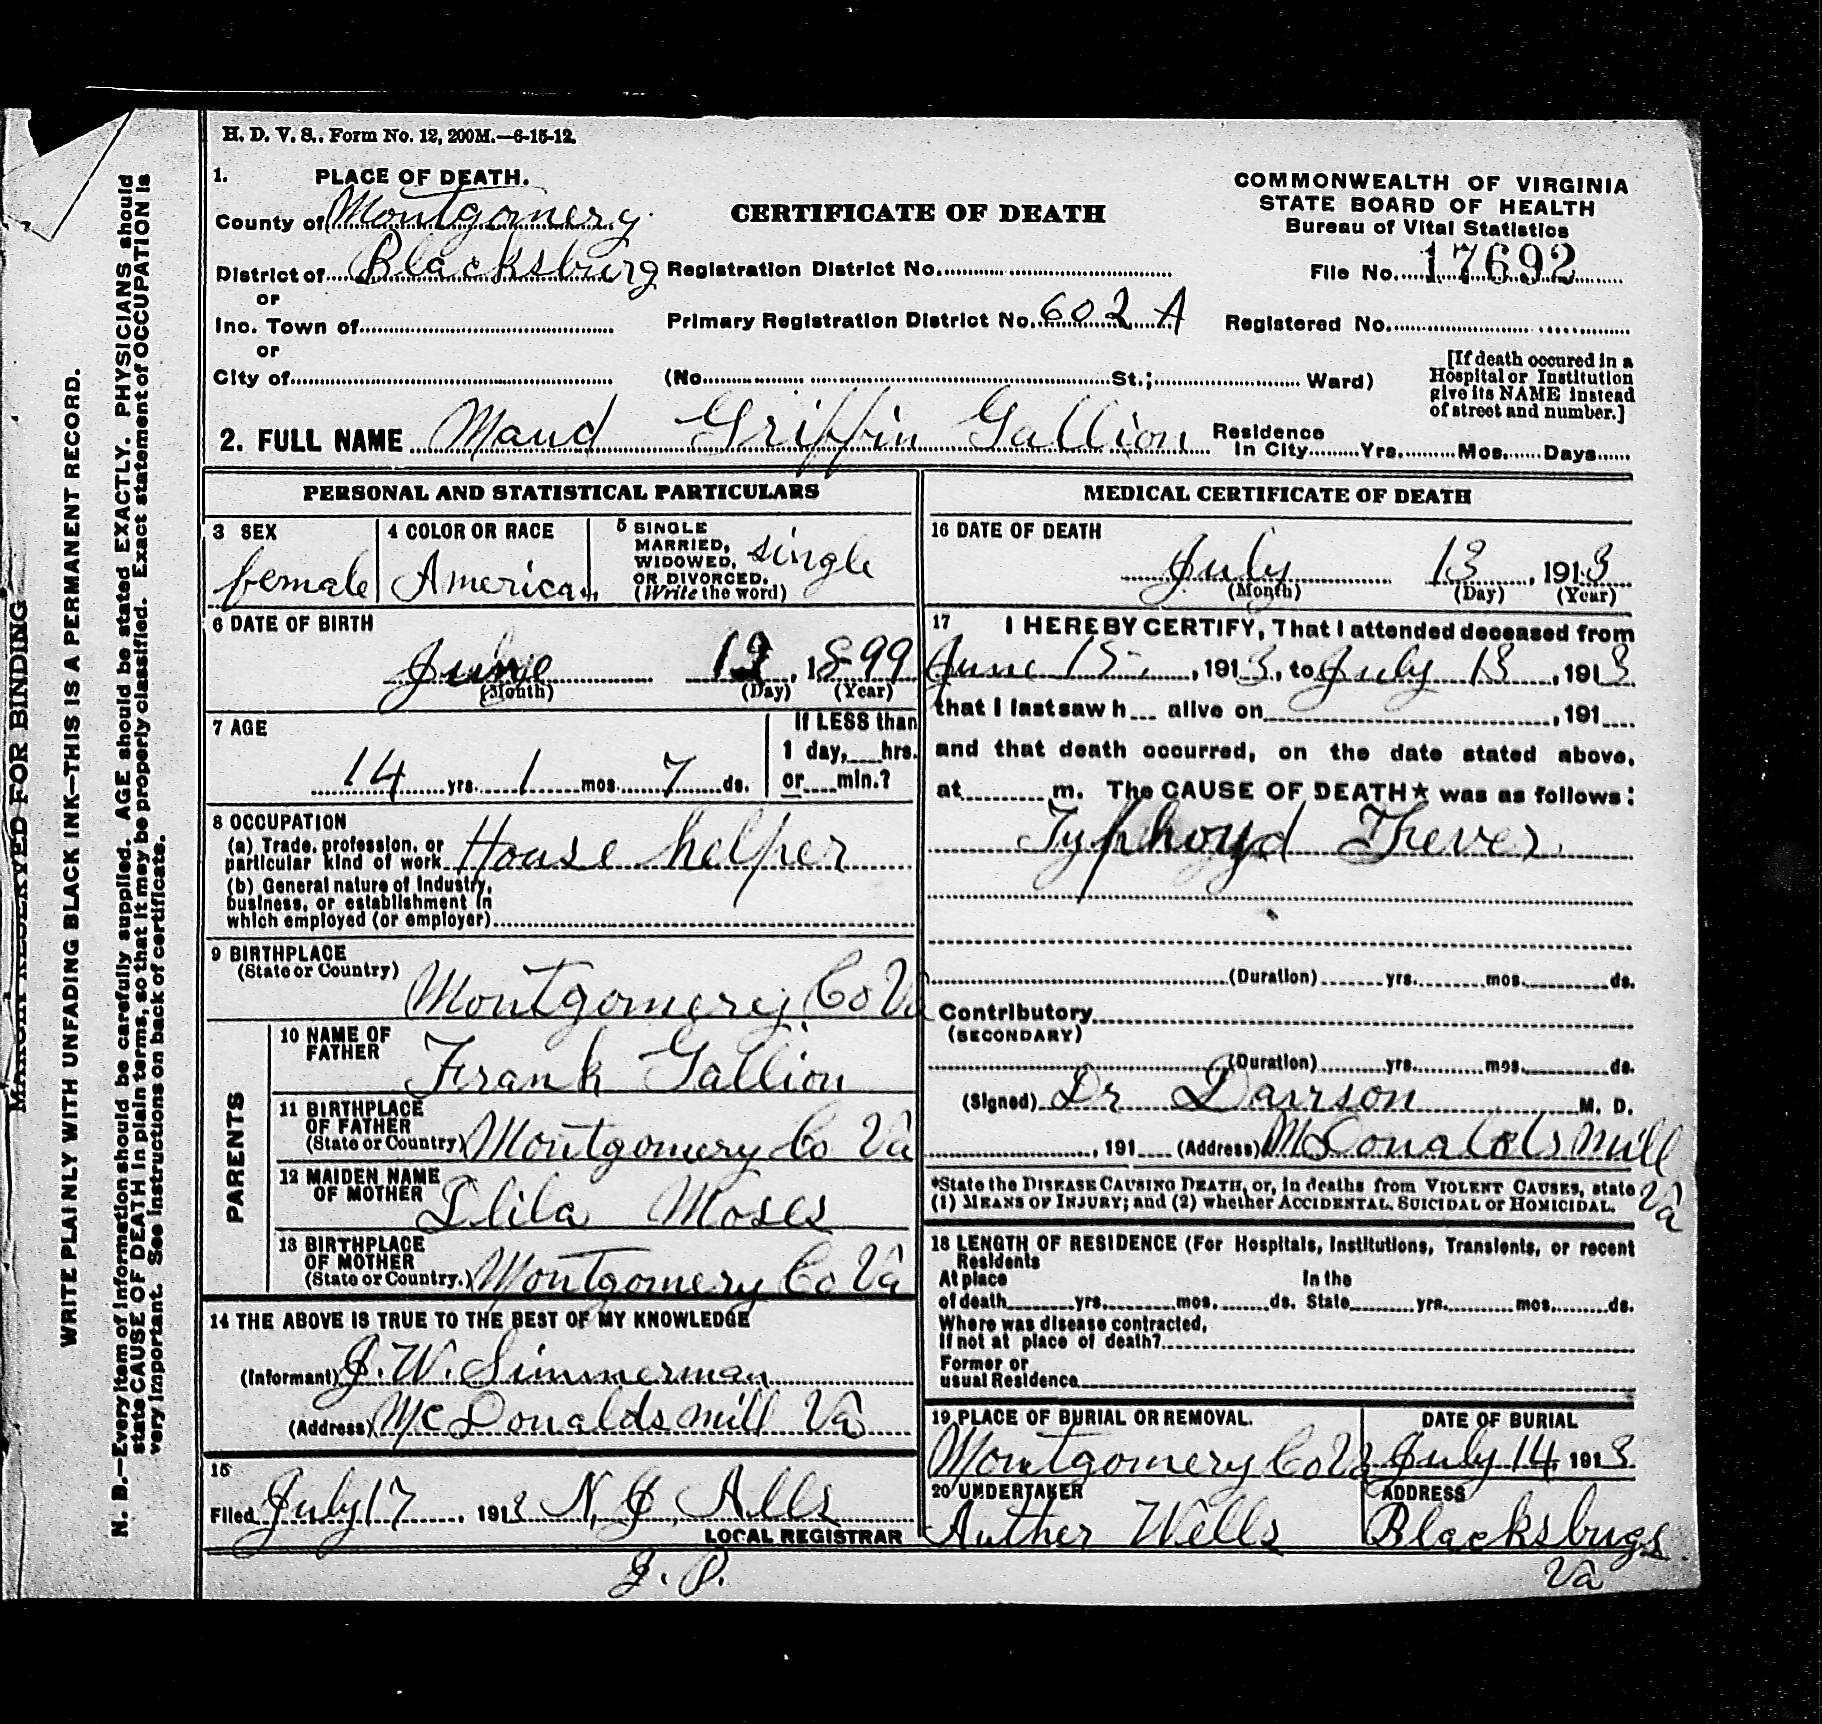 H. D. V. S.. Form No. 12, 200M.—6-15-12.
1. PLACE OF DEATH.
County of Montgomery
District of Blacksburg
or
Inc. Town of
or
City of
CERTIFICATE OF DEATH
Registration District No.
Primary Registration District No. 602 A
(No. St.; Ward)
COMMONWEALTH OF VIRGINIA
STATE BOARD OF HEALTH
Bureau of Vital Statistics
File No. 17692
Registered No.
[If death occured in a
Hospital or Institution
give its NAME instead
of street and number.]
2. FULL NAME Maud Griffin Gallion
Residence
In City Yrs. Mos. Days
PERSONAL AND STATISTICAL PARTICULARS
3 SEX
female
4 COLOR OR RACE
American
5 SINGLE
MARRIED,
WIDOWED,
OR DIVORCED.
(Write the word)
single
6 DATE OF BIRTH
June 12, 1899
(Month) (Day) (Year)
7 AGE
14 yrs. 1 mos. 7 ds.
If LESS than
1 day, hrs.
or min.?
8 OCCUPATION
(a) Trade, profession, or
particular kind of work House helper
(b) General nature of Industry,
business, or establishment in
which employed (or employer)
9 BIRTHPLACE
(State or Country)
Montgomery Co Va
PARENTS
10 NAME OF
FATHER
Frank Gallion
11 BIRTHPLACE
OF FATHER
(State or Country) Montgomery Co Va
12 MAIDEN NAME
OF MOTHER
Moses
13 BIRTHPLACE
OF MOTHER
(State or Country.) Montgomery Co Va
14 THE ABOVE IS TRUE TO THE BEST OF MY KNOWLEDGE
(Informant) J. W. Simmerman
(Address) McDonalds mill Va
15
Filed July 17, 1913 N. J. Alls
LOCAL REGISTRAR
J. P.
MEDICAL CERTIFICATE OF DEATH
16 DATE OF DEATH
July 13, 1913
(Month) (Day) (Year)
17 I HEREBY CERTIFY, That I attended deceased from
June 15, 1913, to July 13, 1913
that I last saw h alive on , 191
and that death occurred, on the date stated above,
at m. The CAUSE OF DEATH* was as follows:
Typhoyd Fever
(Duration) yrs. mos. ds.
Contributory
(SECONDARY)
(Duration) yrs. mos. ds.
(Signed) Dr M. D.
, 191 (Address) McDonalds mill
Va
*State the DISEASE CAUSING DEATH, or, in deaths from VIOLENT CAUSES, state
(1) MEANS OF INJURY; and (2) whether ACCIDENTAL, SUICIDAL or HOMICIDAL.
18 LENGTH OF RESIDENCE (For Hospitals, Institutions, Transients, or recent
Residents
At place In the
of death yrs. mos. ds. State yrs. mos. ds.
Where was disease contracted,
If not at place of death?
Former or
usual Residence
19 PLACE OF BURIAL OR REMOVAL.
Montgomery Co Va
DATE OF BURIAL
July 14, 1913
20 UNDERTAKER
Auther Wells
ADDRESS
Blacksbugs
Va
MARGIN RESERVED FOR BINDING
WRITE PLAINLY WITH UNFADING BLACK INK—THIS IS A PERMANENT RECORD.
N. B.—Every item of information should be carefully supplied. AGE should be stated EXACTLY. PHYSICIANS should
state CAUSE OF DEATH in plain terms, so that it may be properly classified. Exact statement of OCCUPATION is
very important. See instructions on back of certificate.